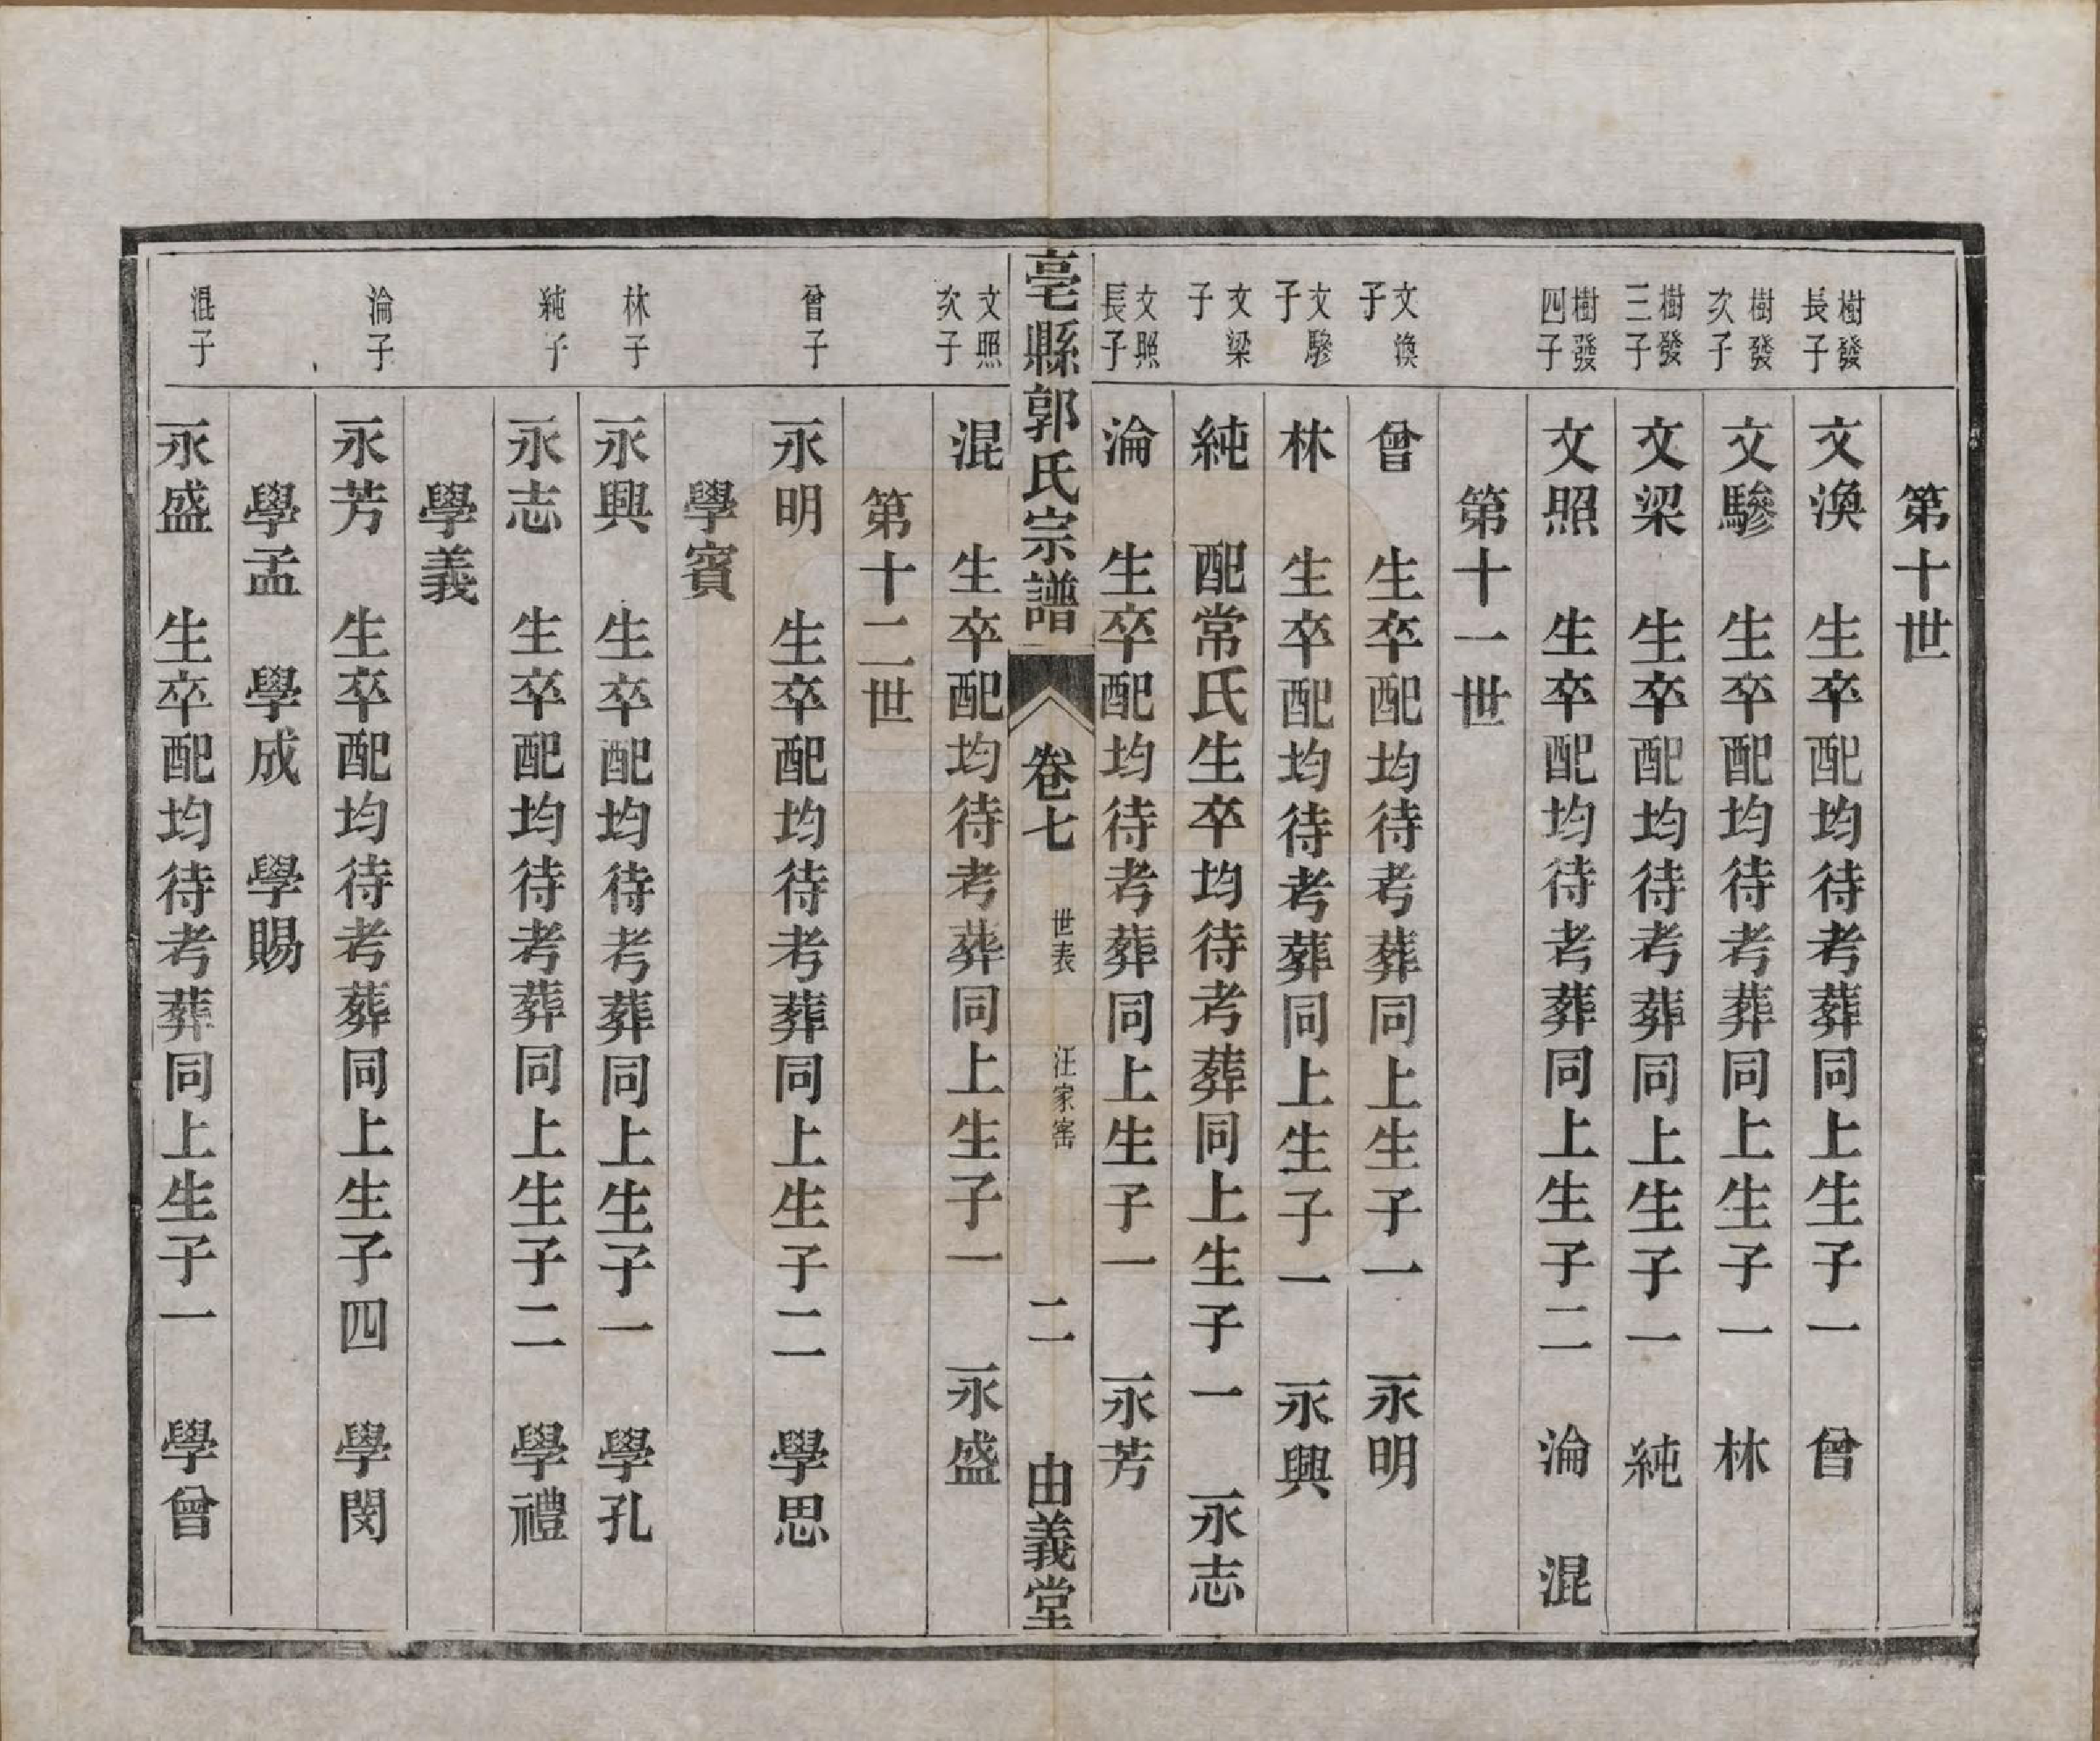 第十世
樹發長子
文渙 生卒配均待考葬同上生子一 曾
樹發次子
文驂 生卒配均待考葬同上生子一 林
樹發三子
文梁 生卒配均待考葬同上生子一 純
樹發四子
文照 生卒配均待考葬同上生子二 淪 混
第十一世
文渙子
曾 生卒配均待考葬同上生子一 永明
文驂子
林 生卒配均待考葬同上生子一 永興
文梁子
純 配常氏生卒均待考葬同上生子一 永志
文照長子
淪 生卒配均待考葬同上生子一 永芳
亳縣郭氏宗譜 卷七 世表 汪家窑 二 由義堂
文照次子
混 生卒配均待考葬同上生子一 永盛
第十二世
曾子
永明 生卒配均待考葬同上生子二 學思
學賓
林子
永興 生卒配均待考葬同上生子一 學孔
純子
永志 生卒配均待考葬同上生子二 學禮
學義
淪子
永芳 生卒配均待考葬同上生子四 學閔
學孟 學成 學賜
混子
永盛 生卒配均待考葬同上生子一 學曾